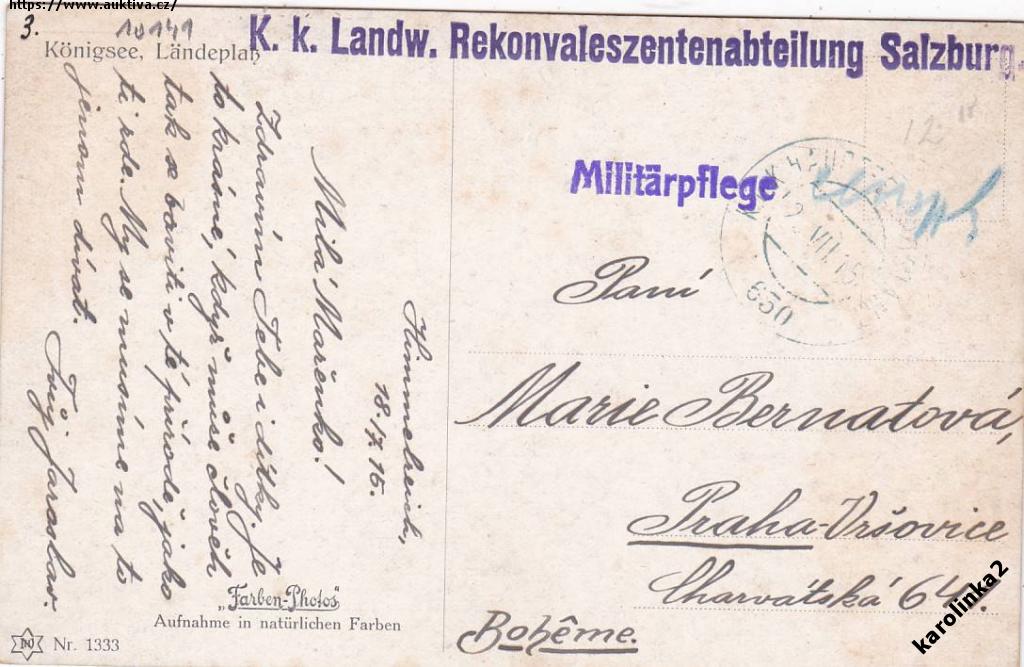 https://www.auktiva.cz/
3.
10141
Königsee, Ländeplatz
K. k. Landw. Rekonvaleszentenabteilung Salzburg.
Militärpflege
12
VII 15
630
Himmelreich,
18./7.15.
Milá Mařenko!
Zdravím Tebe i dítky. Je
to krásné, když může člověk
tak se baviti v té přírodě, jako
ti zde. My se musíme na to
jenom dívat.
Tvůj Jaroslav.
Paní
Marie Bernatová,
Praha-Vršovice
Charvátská 64
Bohême.
„Farben-Photos"
Aufnahme in natürlichen Farben
Nr. 1333
karolinka2